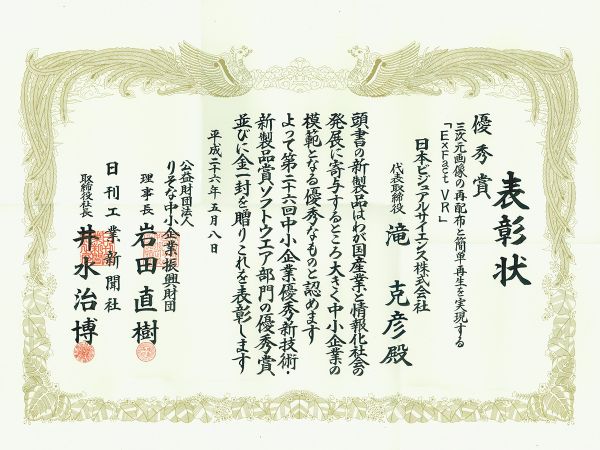 表彰状
優秀賞
三次元画像の再配布と簡単再生を実現する
「ExFact VR」
日本ビジュアルサイエンス株式会社
代表取締役 滝 克彦殿
頭書の新製品はわが国産業と情報化社会の
発展に寄与するところ大きく中小企業の
模範となる優秀なものと認めます
よって第二十六回中小企業優秀新技術・
新製品賞ソフトウエア部門の優秀賞
並びに金一封を贈りこれを表彰します
平成二十六年五月八日
公益財団法人
りそな中小企業振興財団
理事長 岩田直樹
日刊工業新聞社
取締役社長 井水治博